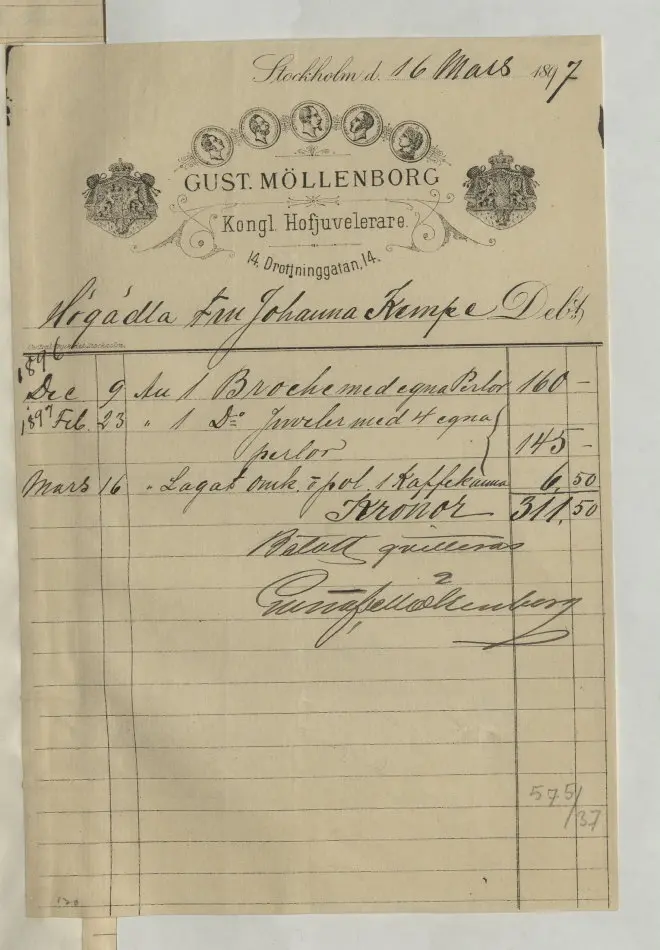 Stockholm d. 16 Mars 1897
GUST. MÖLLENBORG
Kongl. Hofjuvelerare.
14. Drottninggatan, 14.
Högädla Fru Johanna Kempe Debet
1896
Dec 9 Au 1 Broche med egna Perlor 160 –
1897 Feb. 23 " 1 Do Juveler med 4 egna
perlor 145 –
Mars 16 " Lagat omk. o pol. 1 Kaffekanna 6,50
Kronor 311,50
Betalt qvitteras
Gustaf Möllenborg
575/37